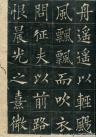 舟遥遥以輕
風飄飄而吹衣
問征夫以前路
恨晨光之熹微